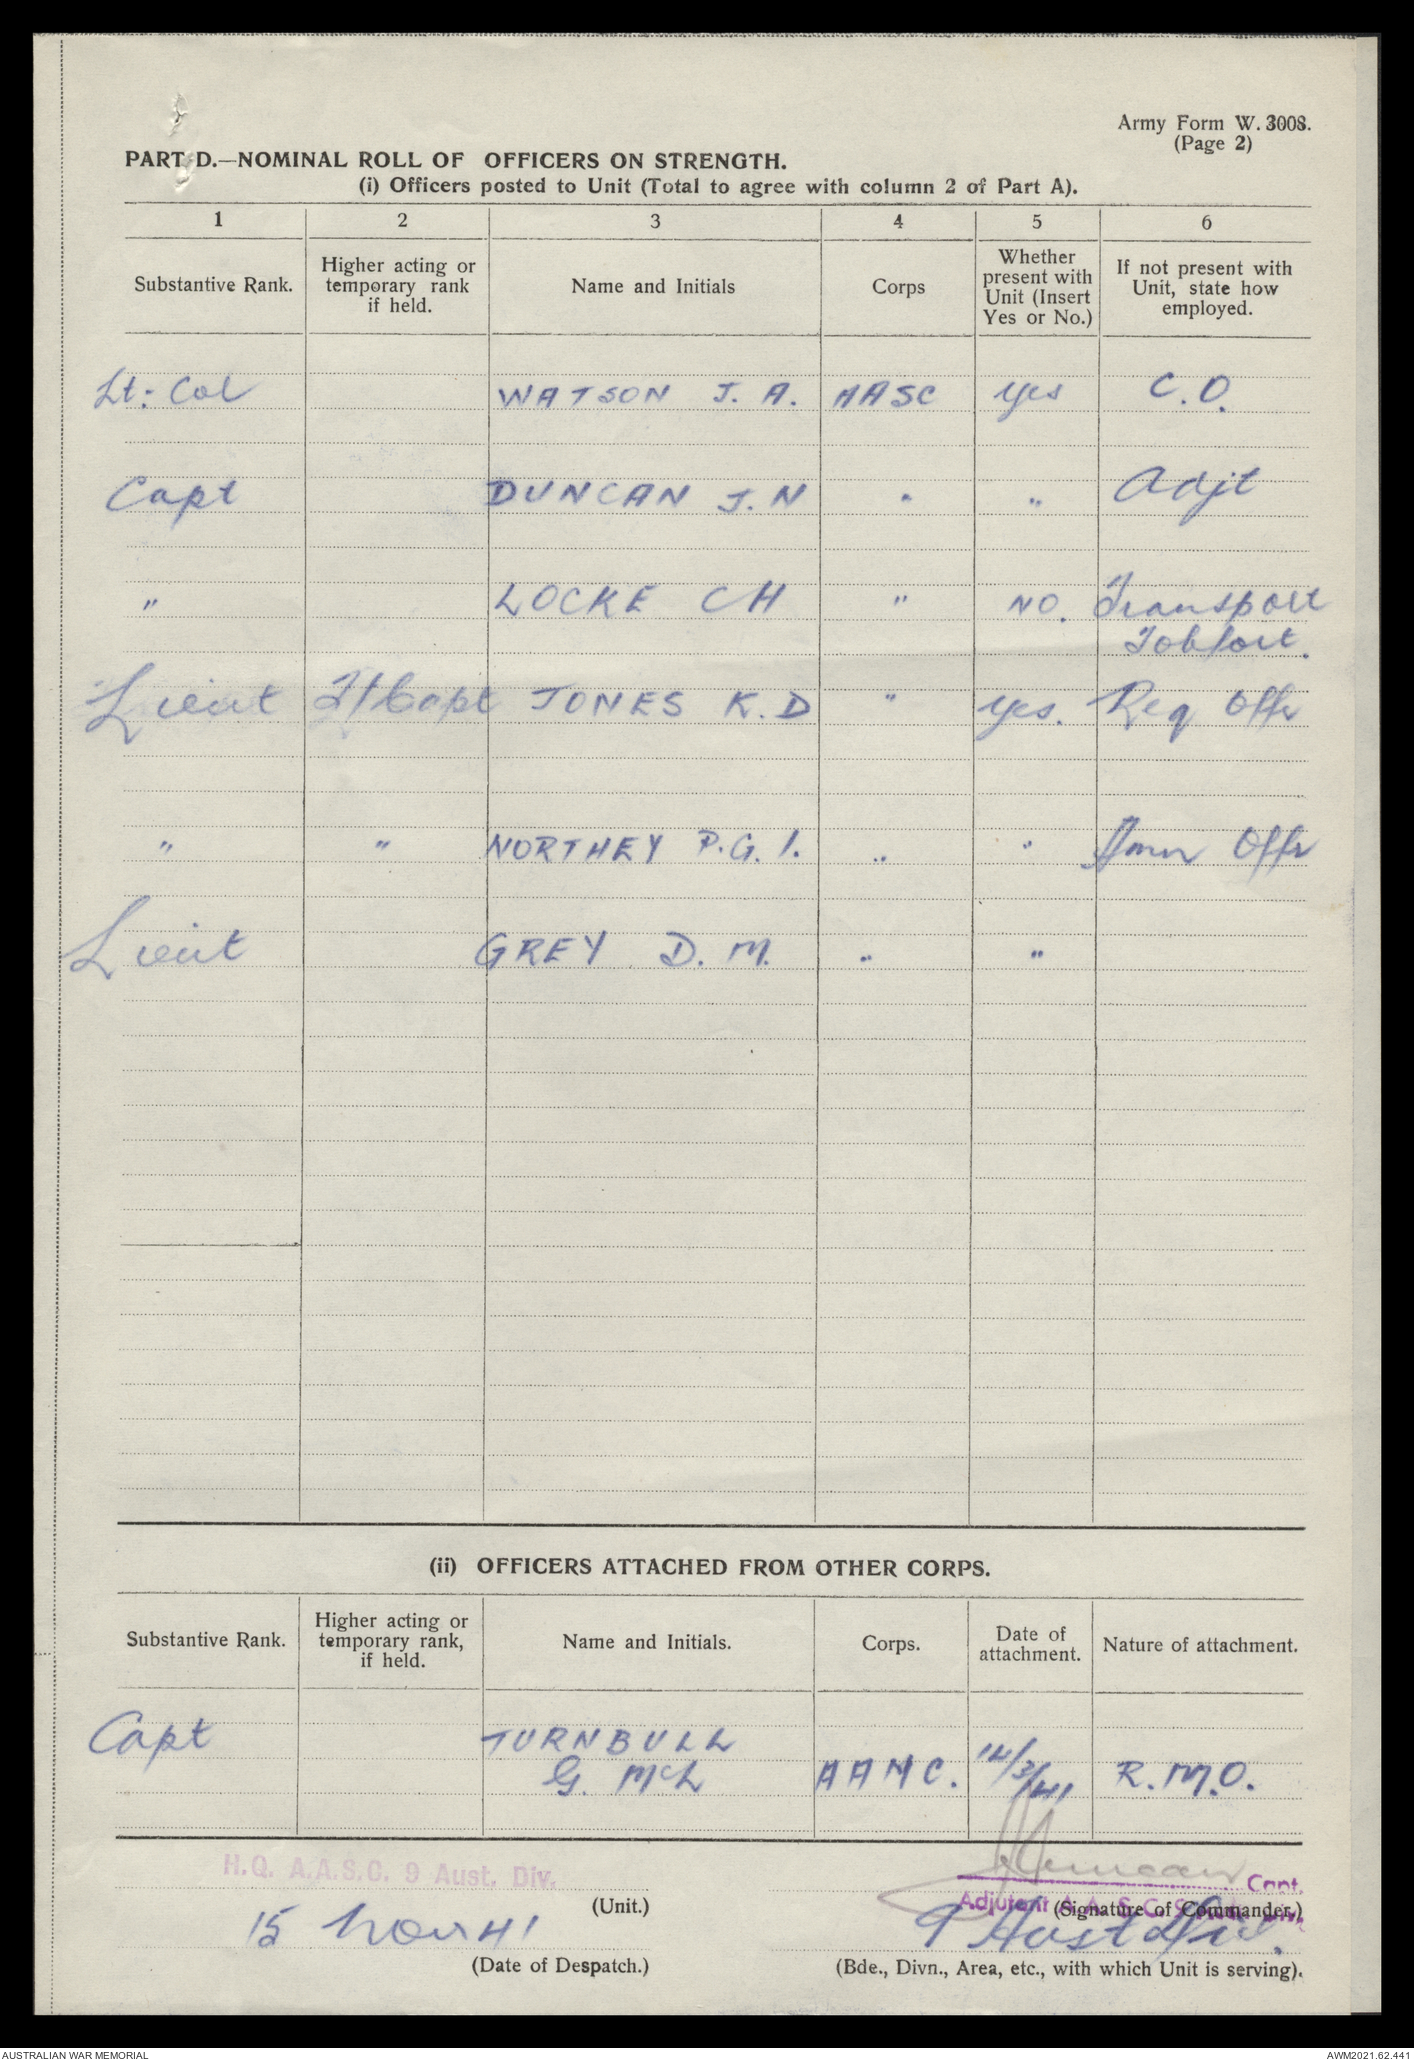 Army Form W. 3008.
(Page 2)
PART D.—NOMINAL ROLL OF OFFICERS ON STRENGTH.
(i) Officers posted to Unit (Total to agree with column 2 of Part A).
1 2 3 4 5 6
Substantive Rank. Higher acting or temporary rank if held. Name and Initials Corps Whether present with Unit (Insert Yes or No.) If not present with Unit, state how employed.
Lt: Col WATSON J. A. AASC yes C.O.
Capt DUNCAN J. N " " Adjt
" LOCKE C H " NO. Transport
Lieut T/Capt JONES K. D " yes. Req Offr
" " NORTHEY P. G. I. " " Offr
Lieut GREY D. M. " "
(ii) OFFICERS ATTACHED FROM OTHER CORPS.
Substantive Rank. Higher acting or temporary rank, if held. Name and Initials. Corps. Date of attachment. Nature of attachment.
Capt TURNBULL
G. McL AAMC. 14/3/41 R.M.O.
H.Q. A.A.S.C. 9 Aust. Div.
Duncan Capt.
(Unit.) Adjutant A.A.S.C. (Signature of Commander.)
15 Nov 41 9 Aust Div.
(Date of Despatch.) (Bde., Divn., Area, etc., with which Unit is serving).
AUSTRALIAN WAR MEMORIAL AWM2021.62.441